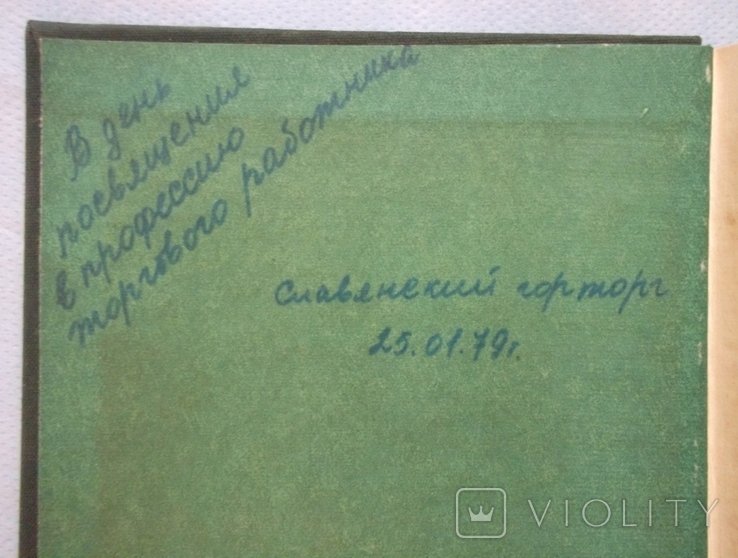 В день
посвящения
в профессию
торгового работника
Славянский горторг
25.01.79г.
VIOLITY